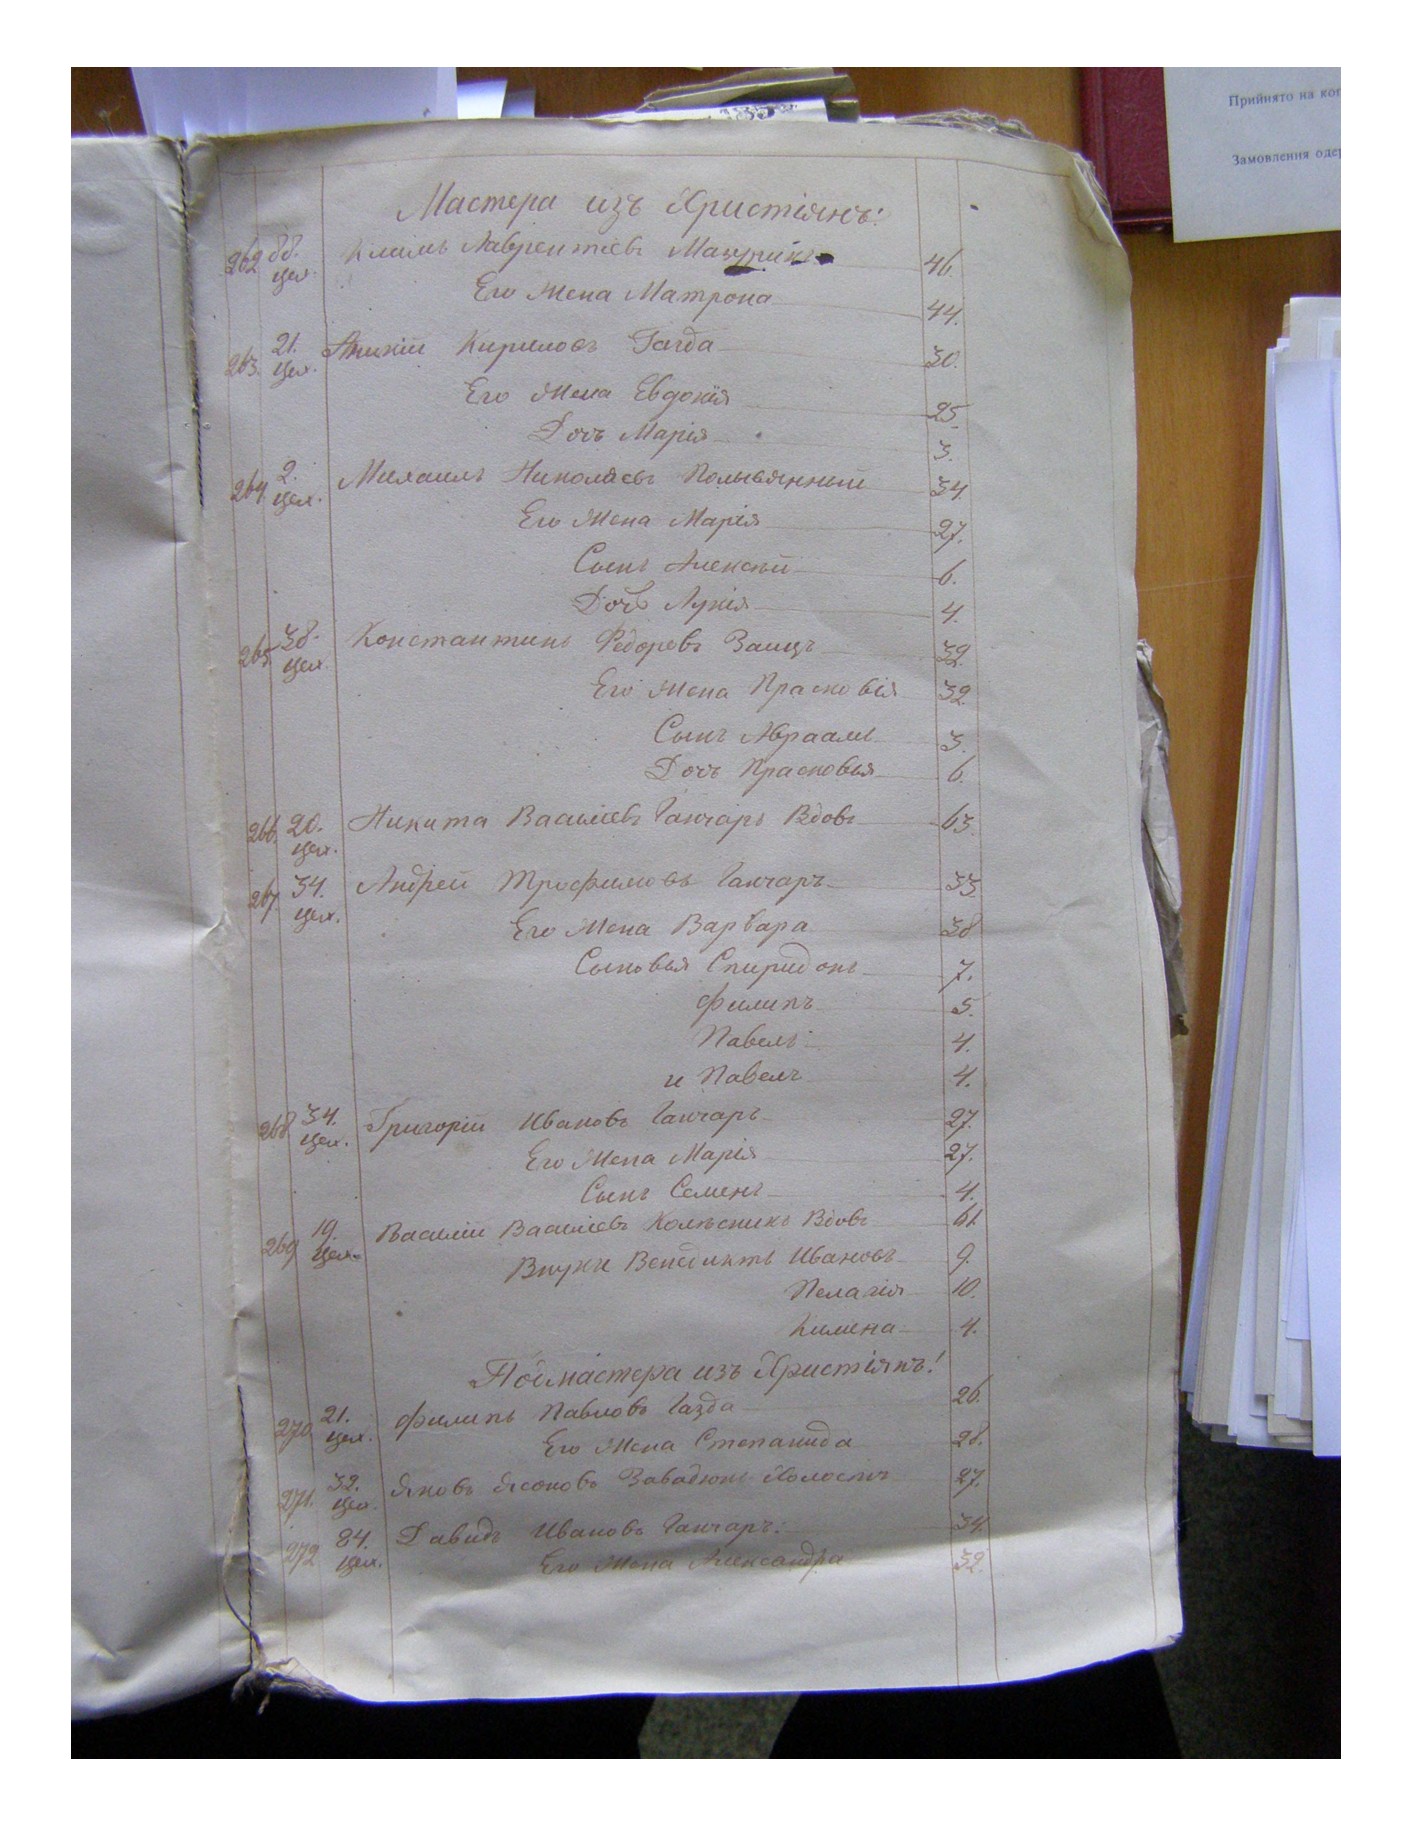 Прийнято на ко
Замовлення оде
Мастера изъ Христіянъ:
262 88. цех. Климъ Лаврентіевъ 46.
Его Жена Матрона 44.
263. 21. цех. Кириловъ Газда 30.
Его Жена Евдокія 25.
Дочь Марія 3.
264. 2. цех. Михаилъ Николаевъ Полывянный 34.
Его Жена Марія 27.
Сынъ Алексѣй 6.
Дочь Лукія 4.
265. 38. цех. Константинъ Федоровъ Заицъ 39.
Его Жена Прасковія 32.
Сынъ Авраамъ 3.
Дочь Прасковья 6.
266. 20. цех. Никита Василіевъ Ганчаръ Вдовъ 63.
267. 34. цех. Андрей Трофимовъ Ганчаръ 33.
Его Жена Варвара 38
Сыновья Спиридонъ 7.
Филипъ 5.
Павелъ 4.
и Павелъ 4.
268 34. цех. Григорій Ивановъ Ганчаръ 27.
Его Жена Марія 27.
Сынъ Семенъ 4.
269 19. цех. Василій Василіевъ Колѣсникъ Вдовъ 61.
Внуки Венедиктъ Ивановъ 9.
Пелагія 10.
4.
Подмастера изъ Христіянъ!
270 21. цех. Филипъ Павловъ Газда 26.
Его Жена Степанида 28.
271. 32. цех. Яковъ Ясоновъ Завадюкъ Холостъ 27.
272 84. цех. Давидъ Ивановъ Ганчаръ: 34.
Его Жена Александра 32.